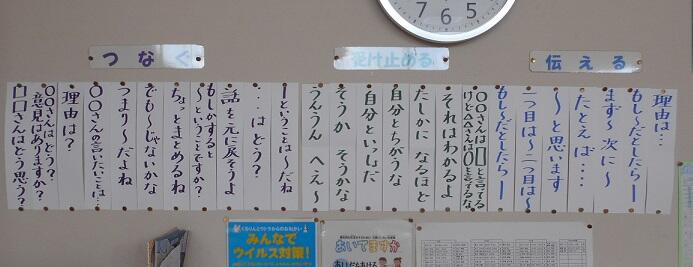 7 6 5
つなぐ
受け止める
伝える
理由は…
もし〜だとしたらー
まず〜次に〜
たとえば…・
〜と思います
一つ目は〜二つ目は〜
もし〜だとしたらー
〇〇さんは□□と言ってる
けど△△さんは〇〇と言てるな
それはわかるよ
たしかに なるほど
自分とちがうな
自分といっしだ
そうか そうかな
うんうん へえ〜
ーということは〜だね
…はどう？
話を元に戻そうよ
もしかすると
〜ということですか？
ちょっとまとめるね
でも〜じゃないかな
つまり〜だよね
〇〇さんの言いたいことは
理由は？
〇〇さんはどう？
意見はありますか？
□□さんはどう思う？
みんなで
ウイルス対策！
おいてますか